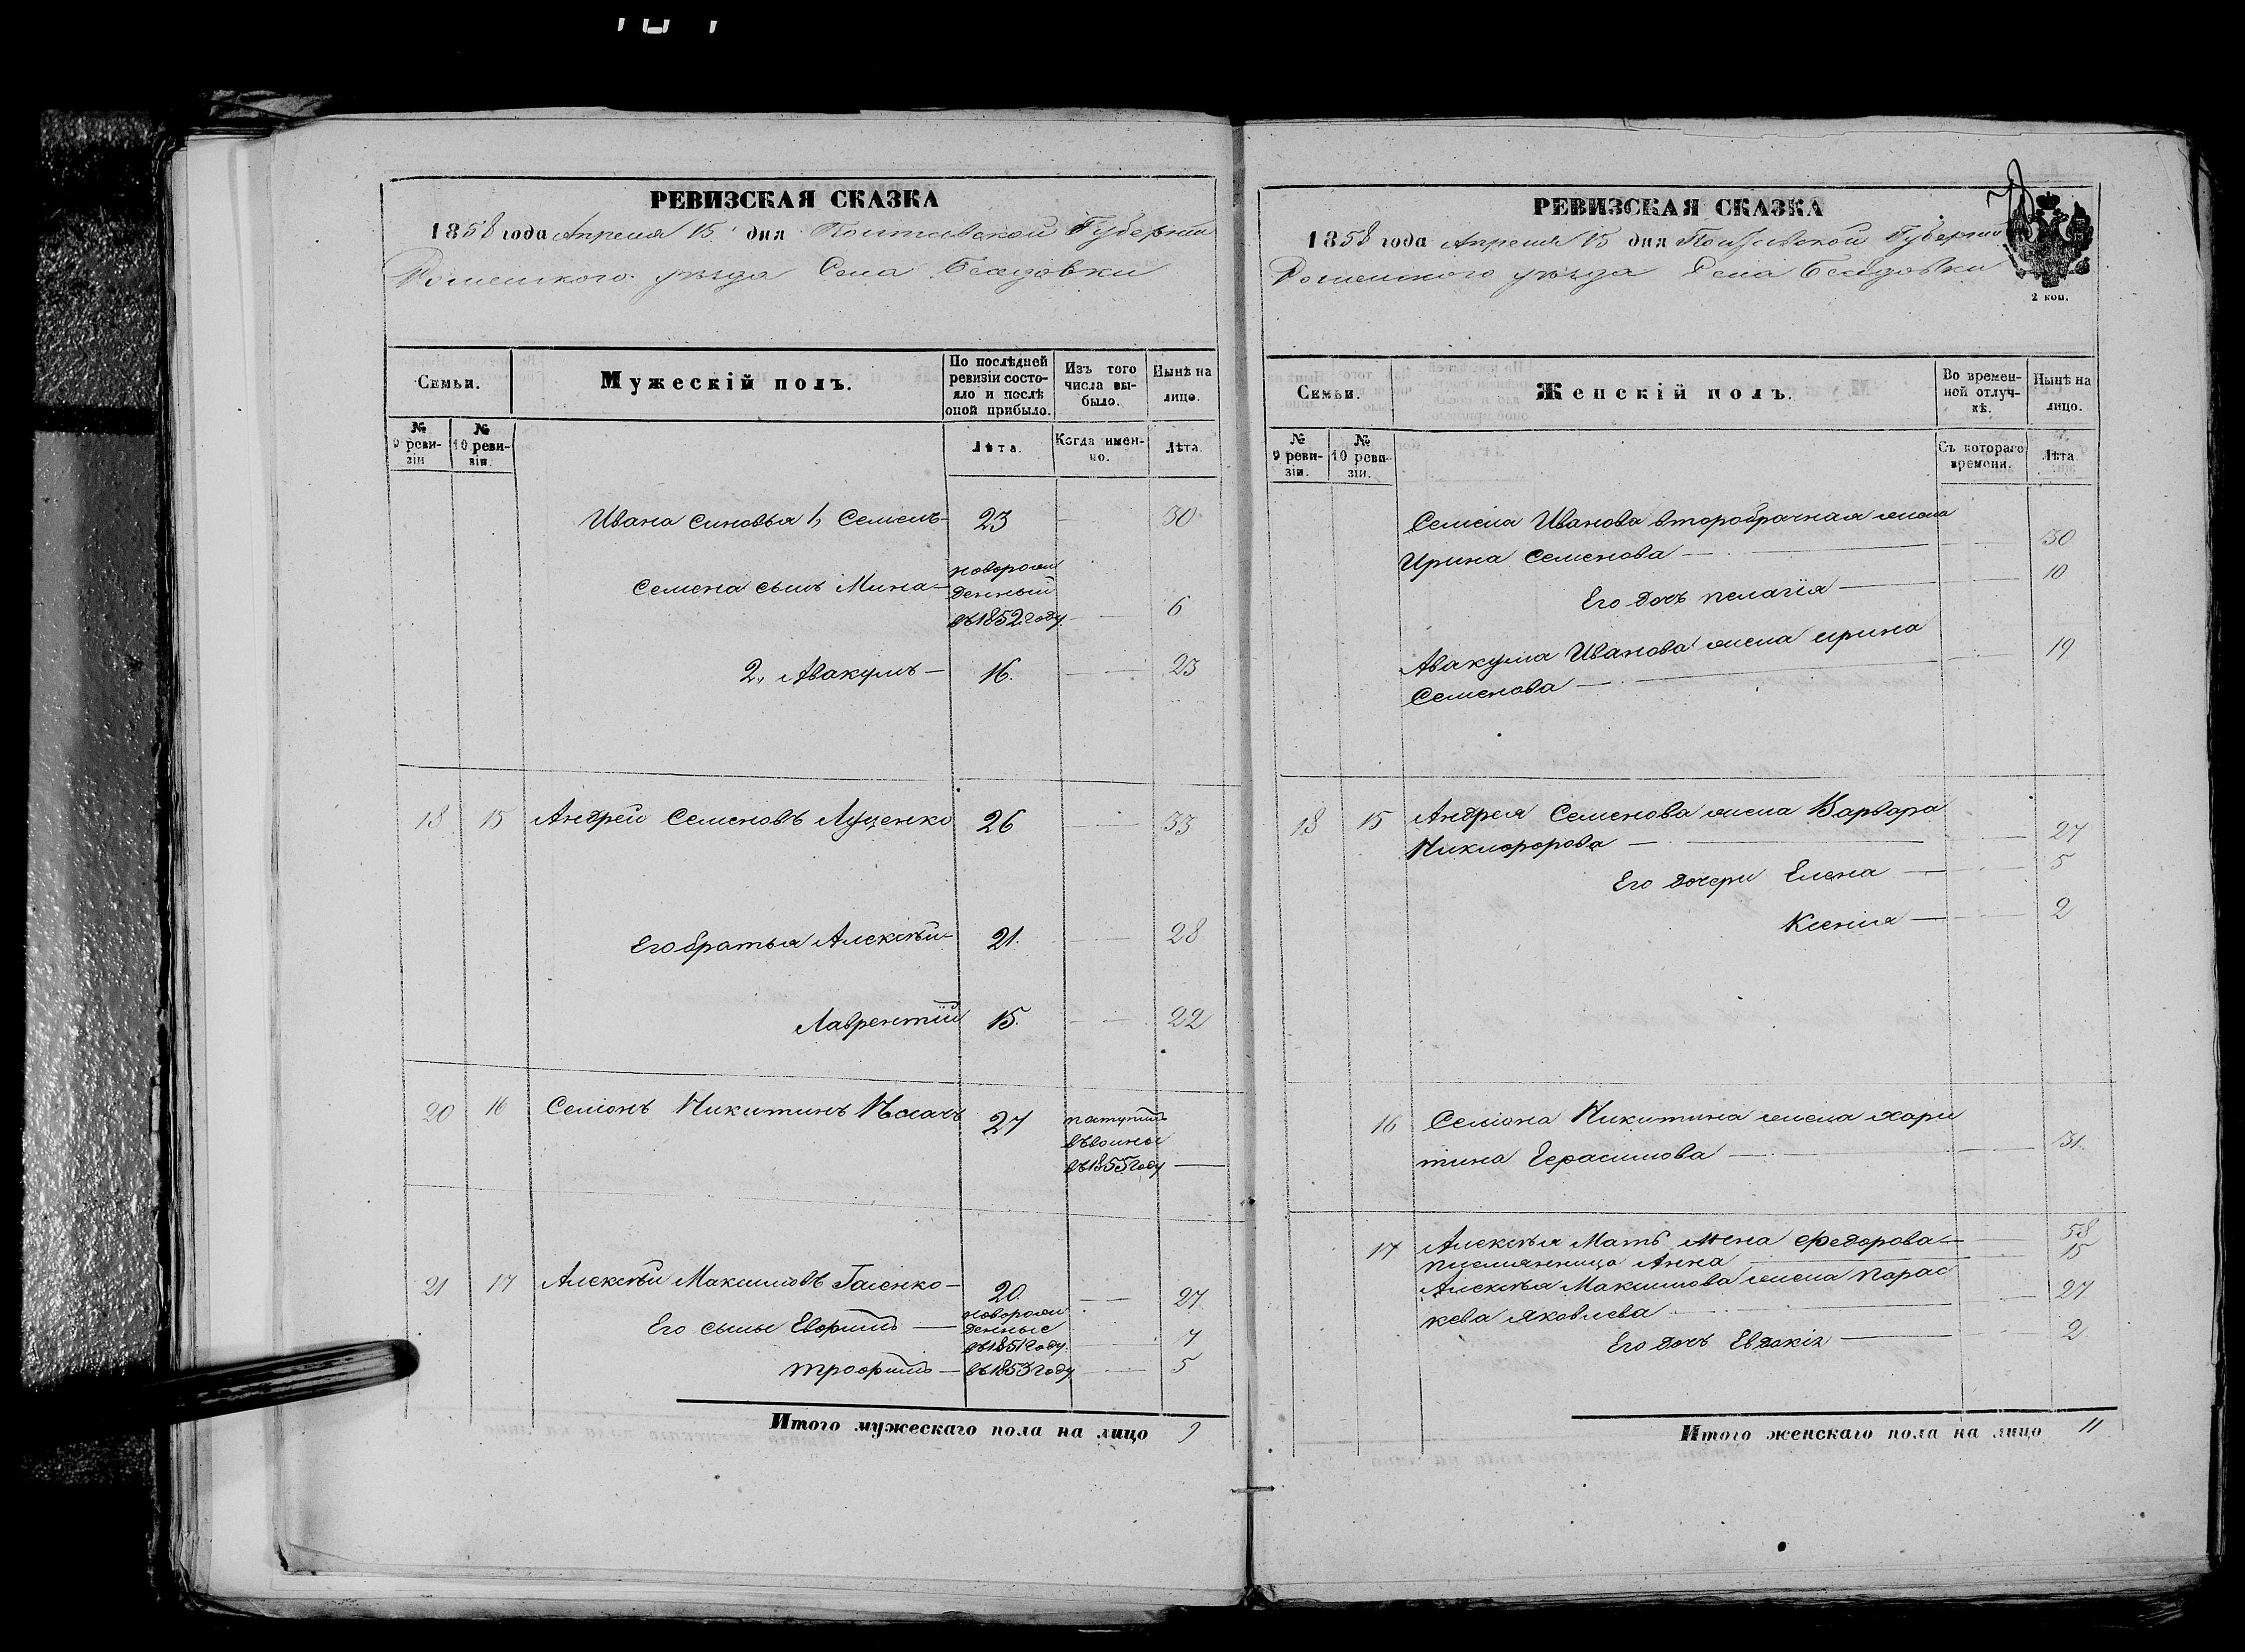 РЕВИЗСКАЯ СКАЗКА
1858 года Апреля 15 дня Полтавской Губерніи
Роменского уѣзда Села Беседовки
Семьи.
Мужескій полъ.
По послѣдней ревизіи состояло и послѣ оной прибыло.
Изъ того числа выбыло.
Нынѣ на лицо.
№ 9 ревизіи
№ 10 ревизіи.
Лѣта.
Когда именно.
Лѣта.
Ивана синовья 1, Семенъ 23 — 30
Семена сынъ Мина — новорожденный въ 1852 году. — 6
2, Авакумъ — 16. — 23
18 15 Андрей Семеновъ Луценко 26 — 33
Его братья Алексѣй 21. — 28
Лаврентій 15. — 22
20 16 Семіонъ Никитинъ 27 поступилъ въ 1855 году —
21 17 Алексѣй Максимовъ Гаіенко — 20. — 27
Его сыны Евфимъ — новорожденные въ 1851 году. — 7
Трофимъ — въ 1853 году — 5
Итого мужескаго пола на лицо 9
РЕВИЗСКАЯ СКАЗКА
1858 года Апреля 15 дня Полтавской Губерніи
Роменского уѣзда Села Беседовки
2 коп.
Семьи.
Женскій полъ.
Во временной отлучкѣ.
Нынѣ на лицо.
№ 9 ревизіи.
№ 10 ревизіи.
Съ котораго времени.
Лѣта
Семена Иванова второбрачная жена
Ирина Семенова — 30
Его дочь Пелагія — 10
Авакума Иванова жена Ирина 19
Семенова —
18 15 Андрея Семенова жена Варвара
Никифорова — 27
Его дочери Елена — 5
Ксенія — 2
16 Семіона Никитина жена Хари
тина Герасимова — 31.
17 Алексѣя Мать Федорова — 58
племянница Анна — 15
Алексѣя Максимова жена Парас
кева Яковлева — 27
Его дочь Евдокія — 2
Итого женскаго пола на лицо 11